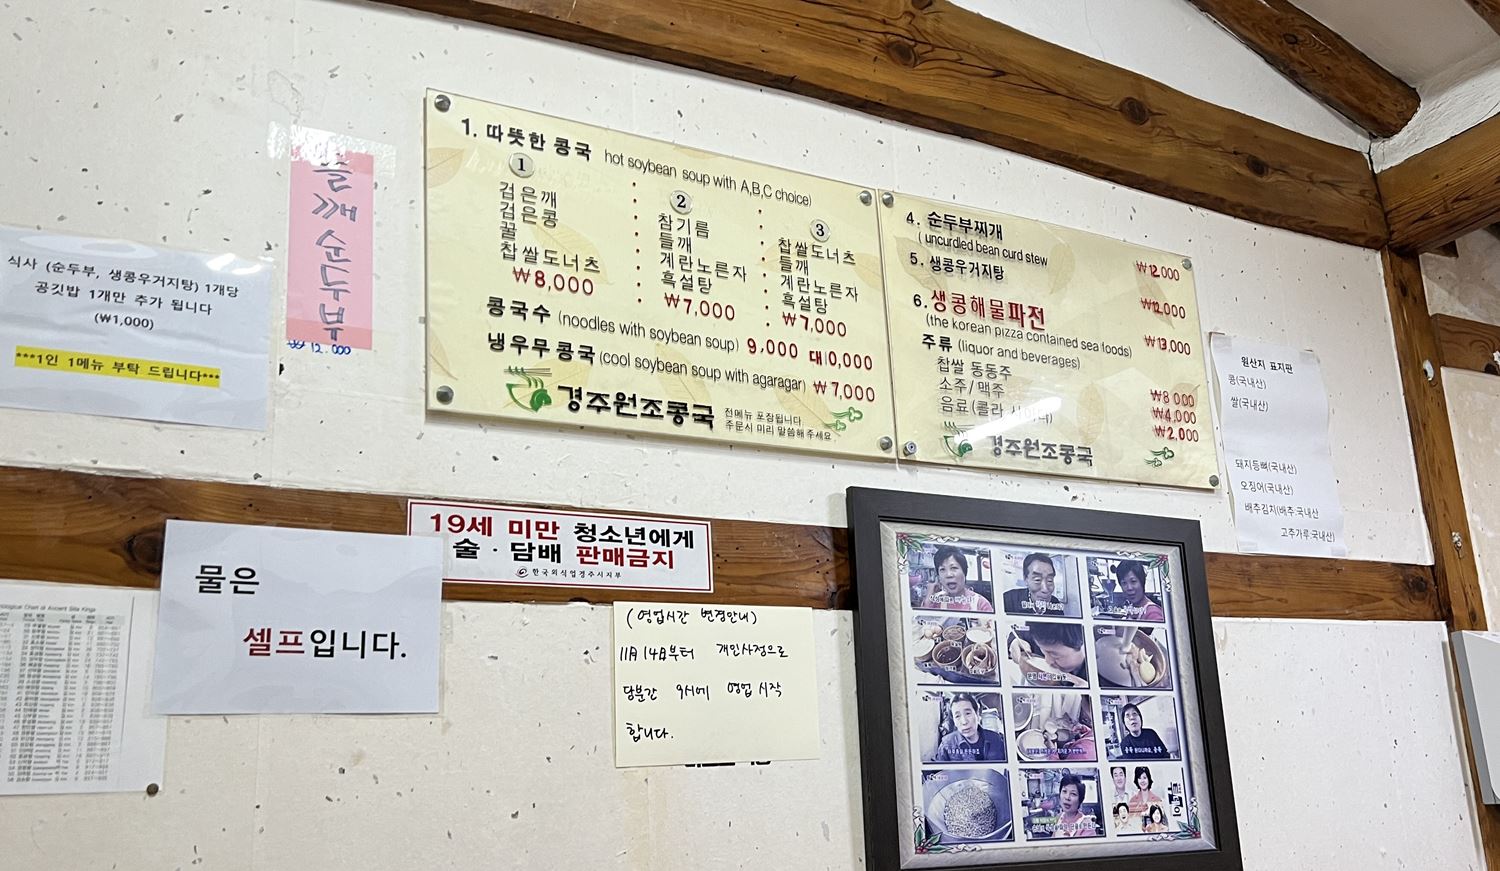 식사 (순두부, 생콩우거지탕) 1개당
공깃밥 1개만 추가 됩니다
(₩1,000)
***1인 1메뉴 부탁 드립니다***
들깨순두부
₩12.000
1. 따뜻한 콩국 hot soybean soup with A,B,C choice)
1
검은깨
검은콩
꿀
찹쌀도너츠
₩8,000
2
참기름
들깨
계란노른자
흑설탕
₩7,000
3
찹쌀도너츠
들깨
계란노른자
흑설탕
₩7,000
콩국수 (noodles with soybean soup) 9,000 대10,000
냉우무콩국 (cool soybean soup with agaragar) ₩7,000
경주원조콩국
전메뉴 포장됩니다
주문시 미리 말씀해 주세요
4. 순두부찌개 ₩12,000
( uncurdled bean curd stew
5. 생콩우거지탕 ₩12,000
6. 생콩해물파전 ₩13,000
(the korean pizza contained sea foods)
주류 (liquor and beverages)
찹쌀 동동주 ₩8,000
소주/맥주 ₩4,000
음료(콜라 사이다) ₩2,000
경주원조콩국
원산지 표지판
콩(국내산)
쌀(국내산)
돼지등뼈(국내산)
오징어(국내산)
배추김치(배추:국내산
고추가루:국내산)
19세 미만 청소년에게
술·담배 판매금지
한국외식업경주시지부
물은
셀프입니다.
(영업시간 변경안내)
11月 14日부터 개인사정으로
당분간 9시에 영업 시작
합니다.